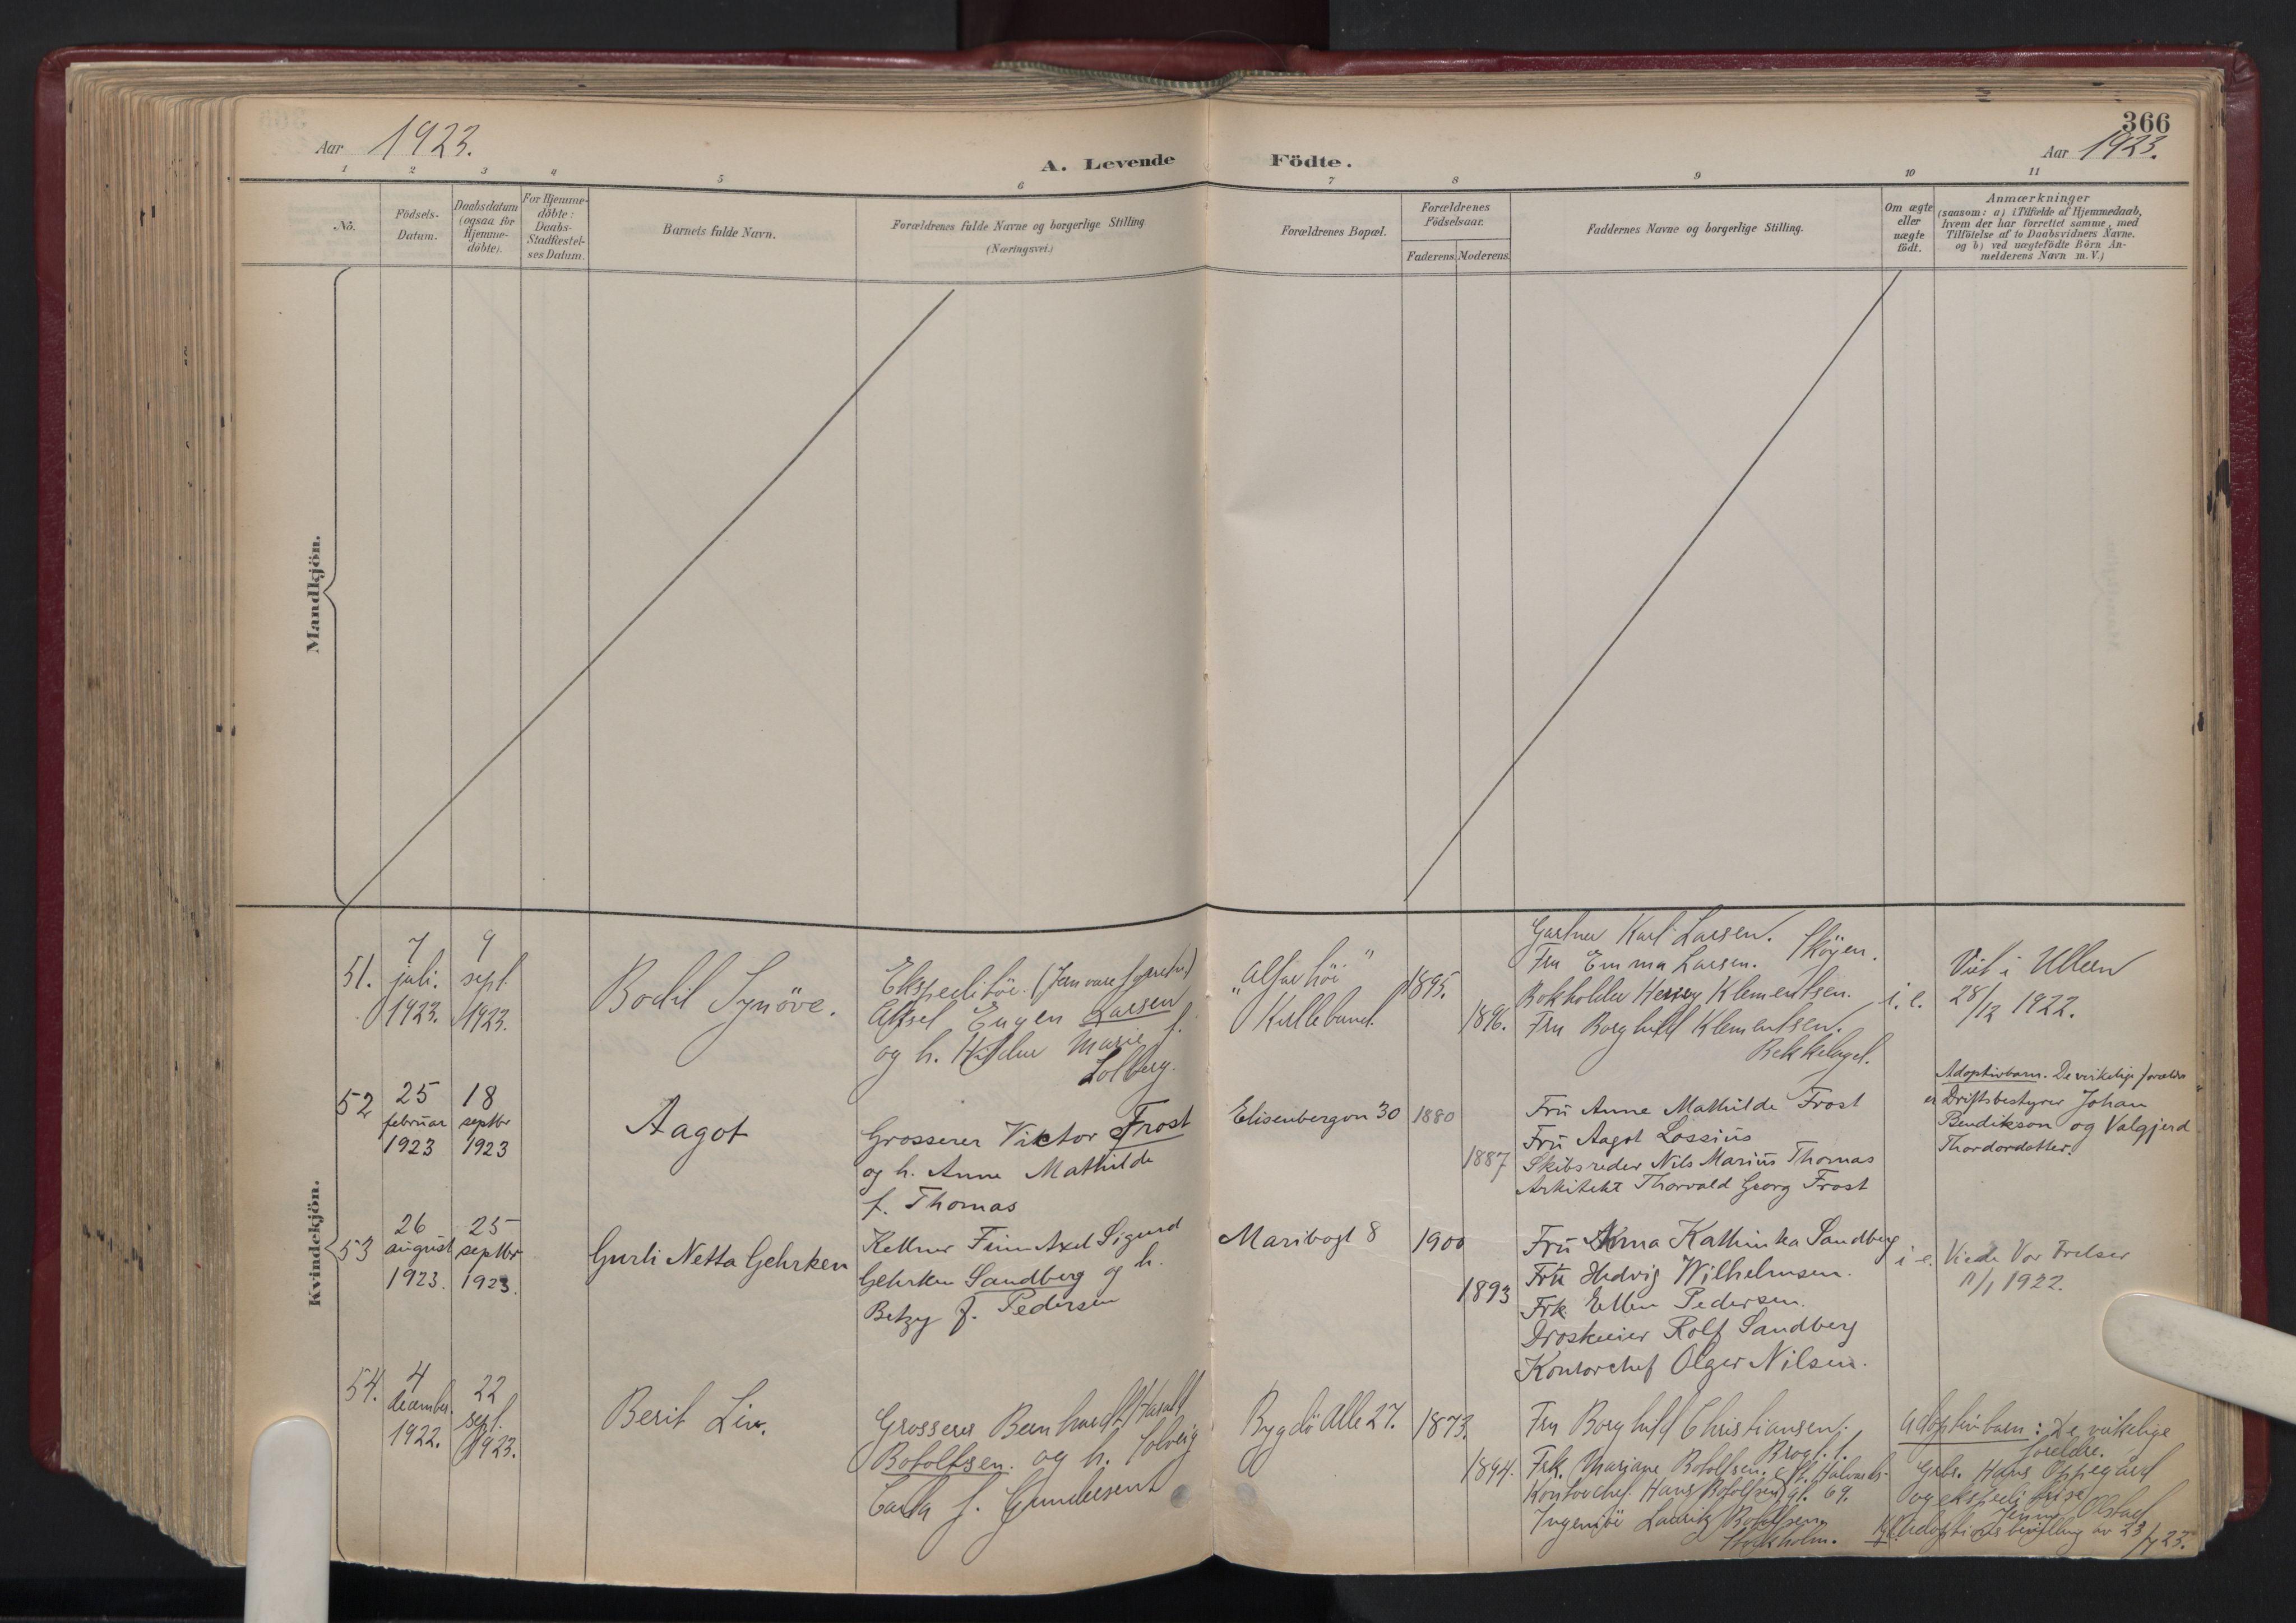 366
Aar 1923.
A. Levende Födte.
Aar 1923.
1 2 3 4 5 6 7 8 9 10 11
No.
Födsels-Datum.
Daabsdatum (ogsaa for Hjemme-döbte).
For Hjemme-döbte: Daabs-Stadfæstel-ses Datum.
Barnets fulde Navn.
Forældrenes fulde Navne og borgerlige Stilling
(Næringsvei.)
Forældrenes Bopæl.
Forældrenes Födselsaar.
Faderens. Moderens.
Faddernes Navne og borgerlige Stilling.
Om ægte eller uægte födt.
Anmærkninger
(saasom: a) i Tilfælde af Hjemmedaab,
hvem der har forrettet samme, med
Tilföielse af to Daabsvidners Navne.
og b) ved uægtefödte Börn An-
melderens Navn m. V.)
Mandkjön.
Kvindekjön.
51.
7 juli. 1923.
9 sept. 1923.
Bodil Synöve.
Ekspeditör.
Aksel Eugen Larsen
og h. Hildur Marie f.
Solberg.
1895.
1896.
Gartner Karl Larsen.
Fru Emma Larsen. Skøyen.
Bokholder Henry Klementsen.
Fru Borghild Klementsen.
Bekkelaget.
i. e.
Viet i Ullern
28/12 1922.
52
25 februar 1923
18 septbr 1923
Aagot
Grosserer Viktor Frost
og h. Anne Mathilde
f. Thomas
Elisenbergvn 30
1880
1887
Frü Anne Mathilde Frost
Frü Aagot Lossius
Skibsreder Nils Marius Thomas
Arkitekt Thorvald Georg Frost
Adoptivbarn. De virkelige forældre
er Driftsbestyrer Johan
Bendikson og Valgjerd
Thordordotter.
53
26 august 1923.
25 septbr 1923.
Gurli Netta Gehrken
Kellner Finn Axel Sigurd
Gehrken Sandberg og h.
Betzy f. Pedersen
Maribogt 8
1900
1893
Frü Anna Kathinka Sandberg
Frü Hedvig Wilhelmsen.
Frk. Ellen Pedersen.
Droskeeier Rolf Sandberg
Kontorchef Olger Nilsen.
i e.
Viede Vor Frelser
11/1 1922.
54.
4 december. 1922.
22 sept. 1923.
Berit Liv.
Grosserer Bernhardt Harald
Botolfsen. og h. Solveig
Carla f. Gundersen
Bygdö Alle 27.
1873.
1894.
Fru Borghild Christiansen.
Frk. Marjane Botolfsen. St. Halvards-
Kontorchef. Hans Botolfsen gt. 69.
Ingeniör Lauritz Botolfsen
Stockholm.
Adoptivbarn: De virkelige
foreldre.
Hans Oppegård
og ekspeditrise
Jenny Olstad
Adoptionsbevilling av 23/7 23.